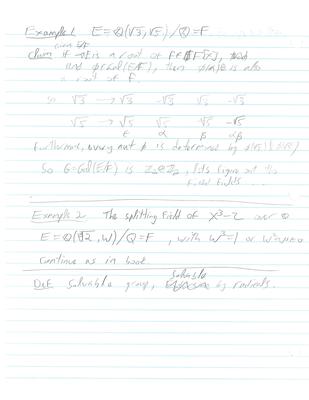 Example 1. E = Q(√3, √5) / Q = F
Claim if a ∈ E is a root of f ∈ F[x],
and φ ∈ Gal(E/F), then φ(a) is also
a root of f.
so √3 → √3 -√3 √3 -√3
√5 → √5 √5 -√5 -√5
ε α β αβ
Furthermore, every aut φ is determined by φ(√3), φ(√5)
So G = Gal(E/F) is Z₂⊕Z₂, let's figure out the
fixed fields...
Example 2. The splitting field of x³-2 over Q
E = Q(∛2, W) / Q = F, with W³=1 or W²+W+1=0
Continue as in book
Solvable
Def Solvable group, by radicals.